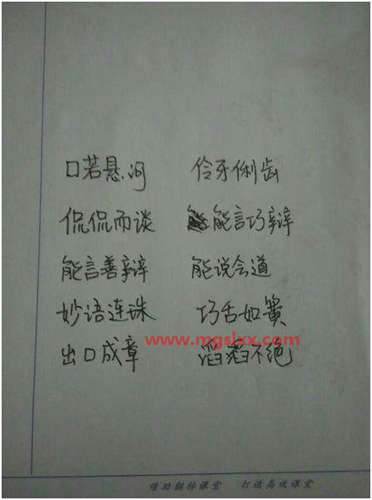 口若悬河 伶牙俐齿
侃侃而谈 能言巧辩
能言善辩 能说会道
妙语连珠 巧舌如簧
www.mgslxx.com
出口成章 滔滔不绝
增助翻转课堂 打造高效课堂